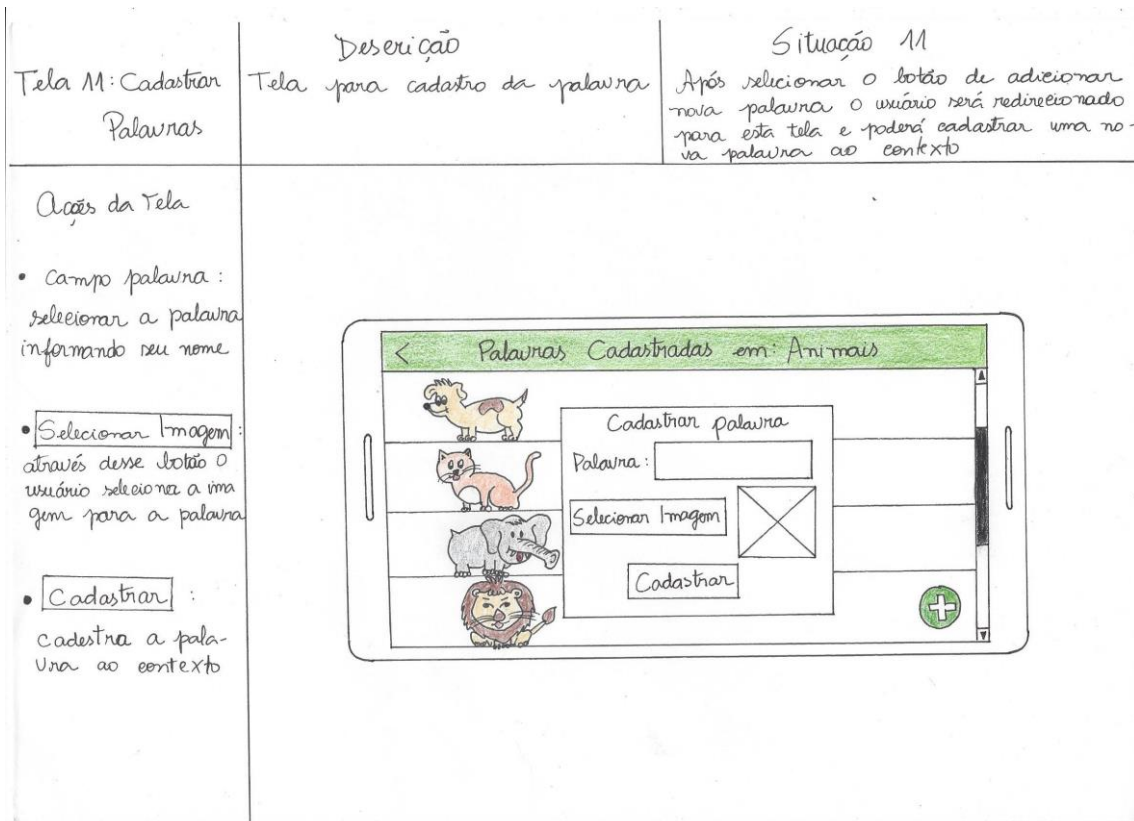 Tela 11: Cadastrar
Palavras
Descrição
Tela para cadastro da palavra
Situação 11
Após selecionar o botão de adicionar
nova palavra o usuário será redirecionado
para esta tela e poderá cadastrar uma no-
va palavra ao contexto
Ações da Tela
• Campo palavra :
selecionar a palavra
informando seu nome
• Selecionar Imagem :
através desse botão o
usuário seleciona a ima
gem para a palavra
• Cadastrar :
cadestra a pala-
vra ao contexto
< Palavras Cadastradas em: Animais
Cadastrar palavra
Palavra :
Selecionar Imagem
Cadastrar